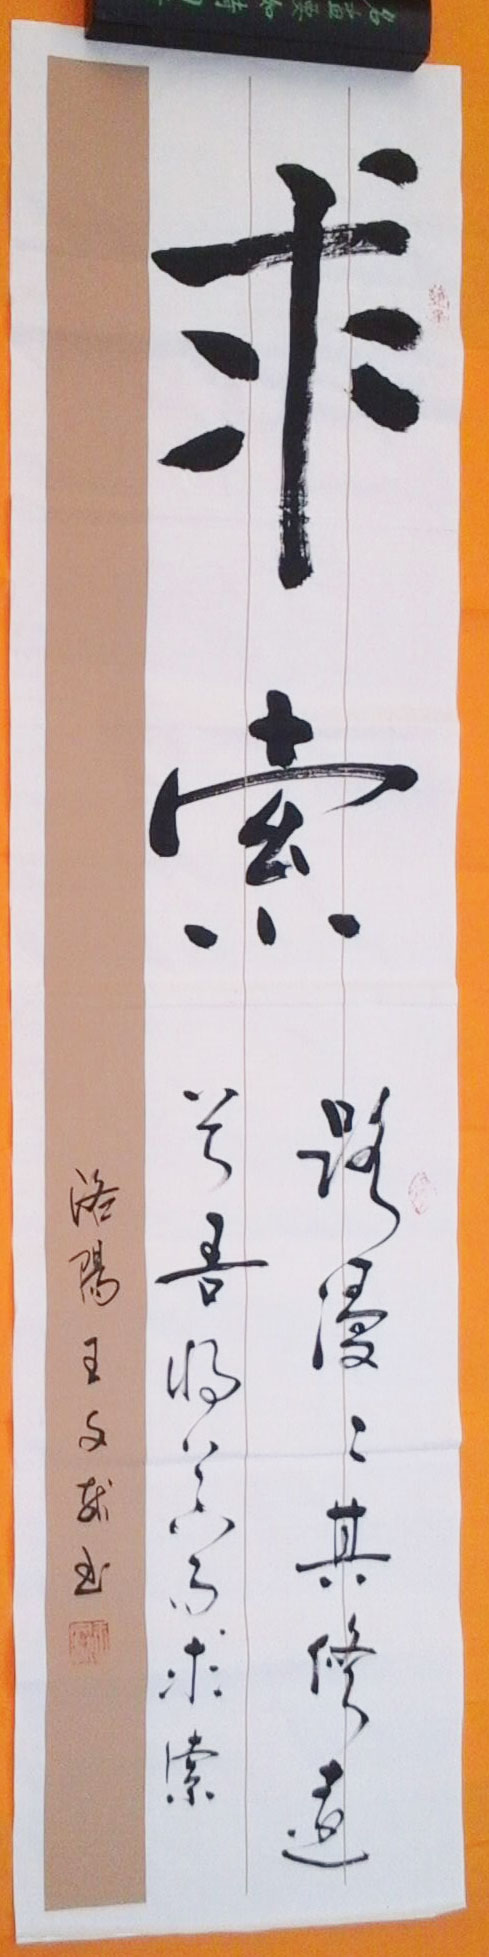 求索
路漫〻其修遠
兮吾将上下而求索
洛陽王文书